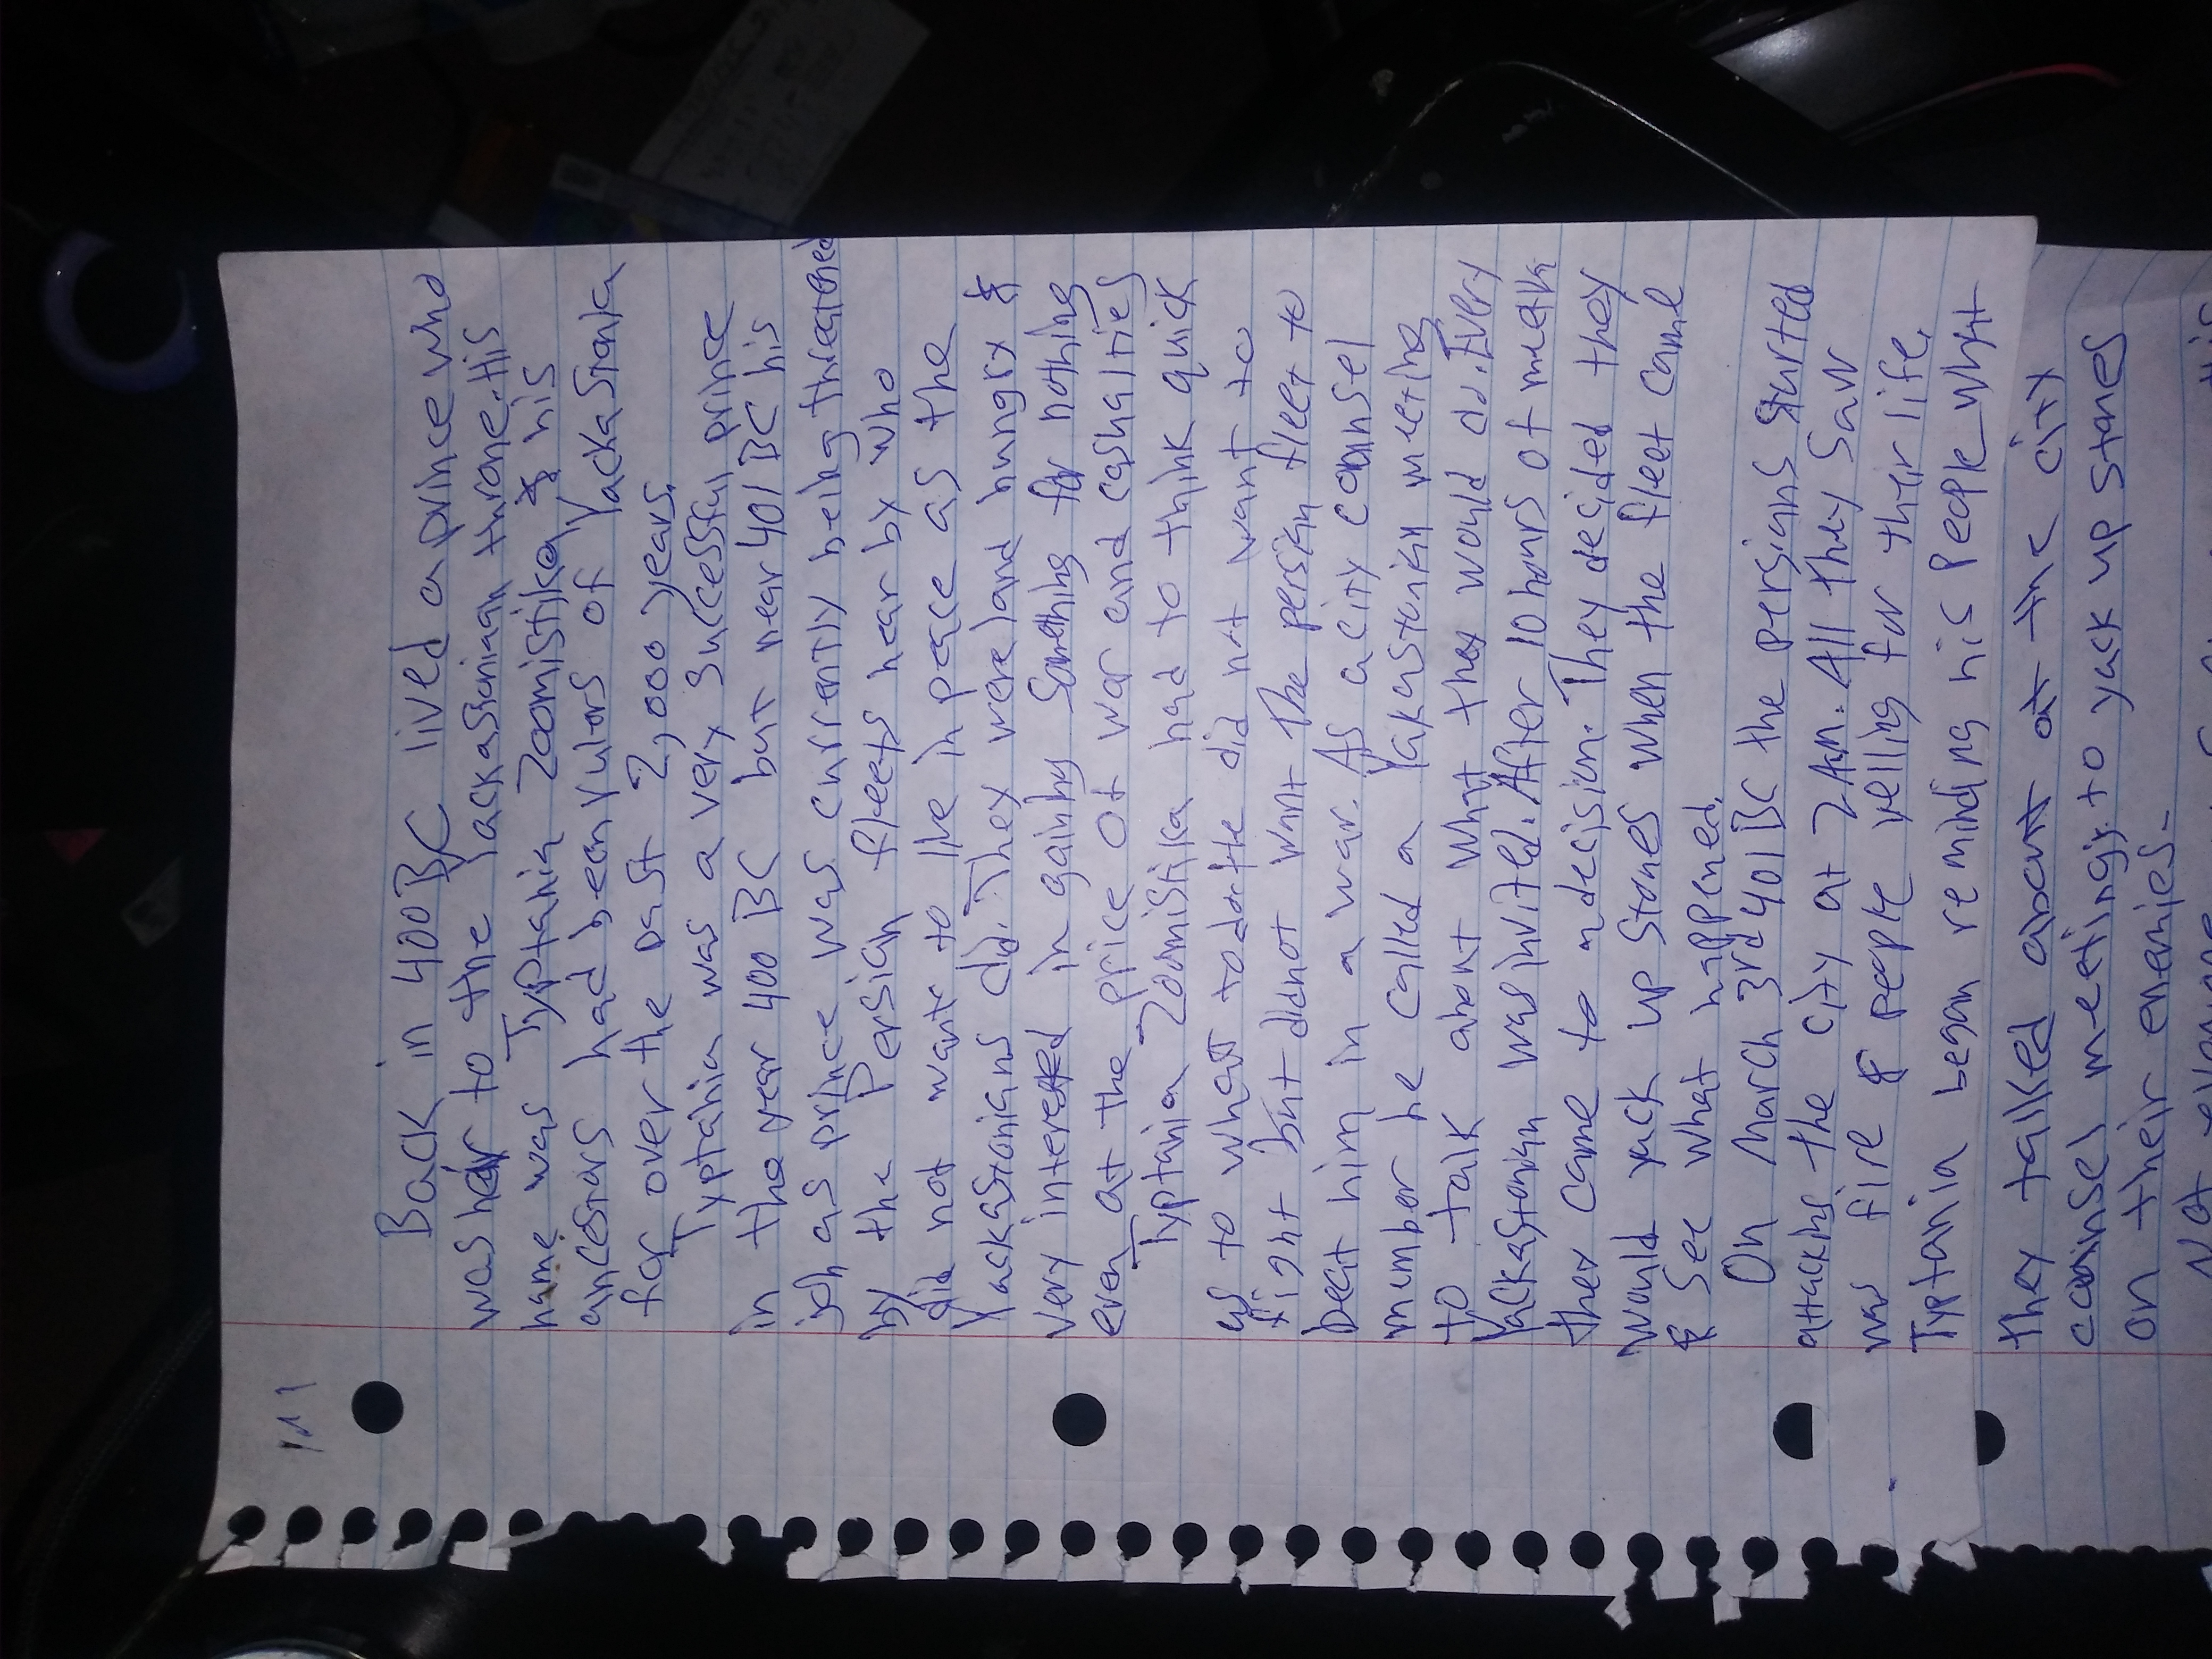 Back in 400 BC lived a prince who
was heir to the Yackastoniaan throne. His
name was Typtania Zoomistika & his
ancestors had been rulers of Yackastonia
for over the past 2,000 years.
Typtania was a very successful prince
in the year 400 BC but near 401 BC his
job as prince was currently being threatened
by the Persian fleets near by who
did not want to live in peace as the
Yackastonians did. They were land hungry &
very interested in gaining something for nothing
even at the price of war and casualties
Typtania Zoomistika had to think quick
as to what to do. He did not want to
fight but did not want the persian fleet to
beat him in a war. As a city counsel
member he called a Yakastonian meeting
to talk about what they would do. Every
Yackastonian was invited. After 10 hours of
they came to a decision. They decided they
would yack up stones when the fleet came
& see what happened.
On March 3rd 401 BC the persians started
attacking the city at 2 A.M. All they saw
was fire & people yelling for their life.
Typtania began reminding his people what
they talked about at the city
counsel meeting; to yack up stones
on their enemies.
Not everyone